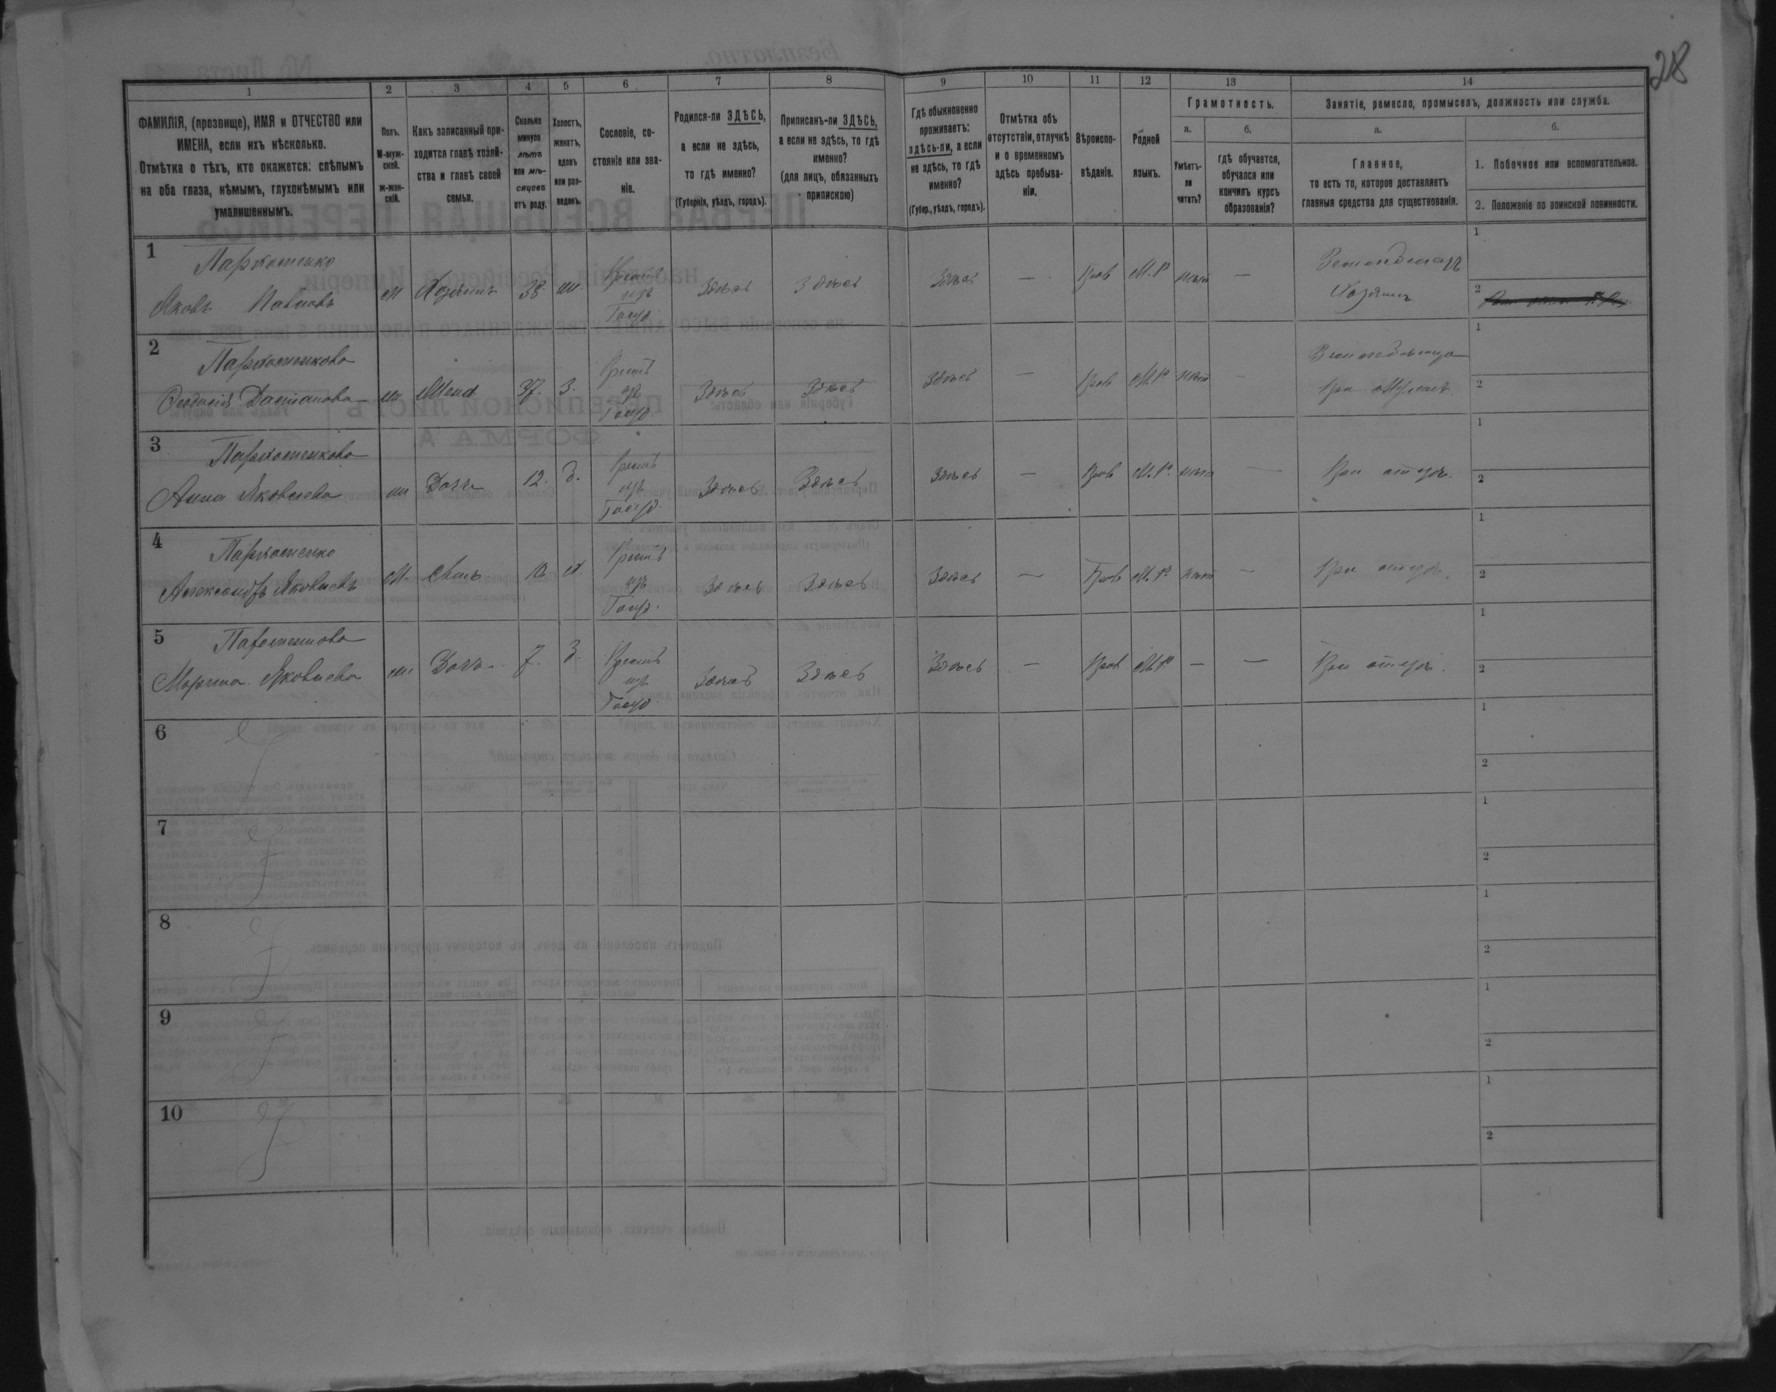 28
1
2
3
4
5
6
7
8
9
10
11
12
13
14
ФАМИЛІЯ, (прозвище), ИМЯ и ОТЧЕСТВО или
ИМЕНА, если ихъ нѣсколько.
Отмѣтка о тѣхъ, кто окажется: слѣпымъ
на оба глаза, нѣмымъ, глухонѣмымъ или
умалишеннымъ.
Полъ.
М-муж-
ской.
ж-жен-
скій.
Какъ записанный при-
ходится главѣ хозяй-
ства и главѣ своей
семьи.
Сколько
минуло
лѣтъ
или мѣ-
сяцевъ
отъ роду.
Холостъ,
женатъ,
вдовъ
или раз-
веденъ.
Сословіе, со-
стояніе или зва-
ніе.
Родился-ли ЗДѢСЬ,
а если не здѣсь,
то гдѣ именно?
(Губернія, уѣздъ, городъ).
Приписанъ-ли ЗДѢСЬ,
а если не здѣсь, то гдѣ
именно?
(для лицъ, обязанныхъ
припискою)
Гдѣ обыкновенно
проживаетъ:
здѣсь-ли, а если
не здѣсь, то гдѣ
именно?
(Губер., уѣздъ, городъ).
Отмѣтка объ
отсутствіи, отлучкѣ
и о временномъ
здѣсь пребыва-
ніи.
Вѣроиспо-
вѣданіе.
Родной
языкъ.
Грамотность.
а.
Умѣетъ-
ли
читать?
б.
гдѣ обучается,
обучался или
кончилъ курсъ
образованія?
Занятіе, ремесло, промыселъ, должность или служба.
а.
Главное,
то есть то, которое доставляетъ
главныя средства для существованія.
б.
1. Побочное или вспомогательное.
2. Положеніе по воинской повинности.
1
Пархоменко
Яковъ Павловъ
м Хозяинъ 38 ж. Крест. изъ Госуд. Здѣсь Здѣсь Здѣсь — Прав М.Р нѣт —
Земледѣлецъ
Хозяинъ
1
2
2
Пархоменкова
Феодосія Даміанова
ж Жена 37. З. Крест изъ Госуд. Здѣсь Здѣсь Здѣсь — Прав М.Р нѣт
Земледѣлица
при мужѣ
1
2
3
Пархоменкова
Анна Яковлева
ж Дочь 12. д. Крест изъ Госуд. Здѣсь Здѣсь Здѣсь — Прав М.Р. нѣт —
При отцѣ.
1
2
4
Пархоменко
Александръ Яковлевъ
М. Сынъ 10 х. Крест изъ Госуд. Здѣсь Здѣсь Здѣсь — Прав М.Р нѣт —
При отцѣ.
1
2
5
Пархоменкова
Марина Яковлева
ж Дочь 7. Крест изъ Госуд. Здѣсь Здѣсь Здѣсь — Прав М.Р — —
При отцѣ.
1
2
6
1
2
7
1
2
8
1
2
9
1
2
10
1
2